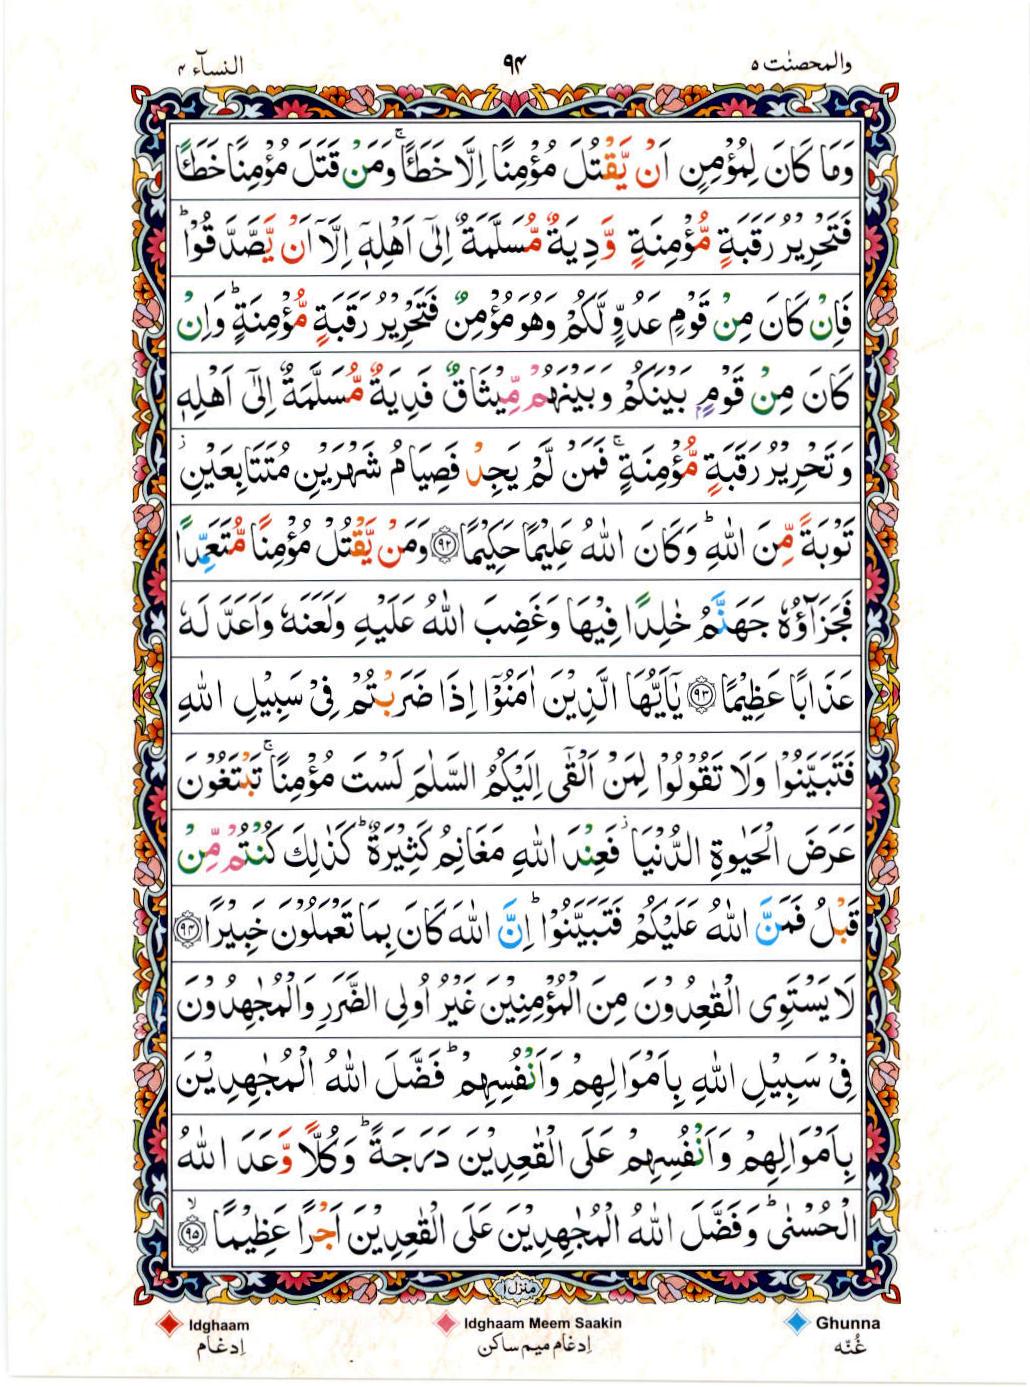 والمحصنٰت ٥
٩٤
النسآء ٤
وَمَا كَانَ لِمُؤْمِنٍ اَنْ يَّقْتُلَ مُؤْمِنًا اِلَّا خَطَـًٔا ۚ وَمَنْ قَتَلَ مُؤْمِنًا خَطَـًٔا
فَتَحْرِيْرُ رَقَبَةٍ مُّؤْمِنَةٍ وَّدِيَةٌ مُّسَلَّمَةٌ اِلٰٓى اَهْلِهٖٓ اِلَّآ اَنْ يَّصَّدَّقُوْا ؕ
فَاِنْ كَانَ مِنْ قَوْمٍ عَدُوٍّ لَّكُمْ وَهُوَ مُؤْمِنٌ فَتَحْرِيْرُ رَقَبَةٍ مُّؤْمِنَةٍ ؕ وَاِنْ
كَانَ مِنْ قَوْمٍۭ بَيْنَكُمْ وَبَيْنَهُمْ مِّيْثَاقٌ فَدِيَةٌ مُّسَلَّمَةٌ اِلٰٓى اَهْلِهٖ
وَتَحْرِيْرُ رَقَبَةٍ مُّؤْمِنَةٍ ۚ فَمَنْ لَّمْ يَجِدْ فَصِيَامُ شَهْرَيْنِ مُتَتَابِعَيْنِ ز
تَوْبَةً مِّنَ اللّٰهِ ؕ وَكَانَ اللّٰهُ عَلِيْمًا حَكِيْمًا ﴿٩٢﴾ وَمَنْ يَّقْتُلْ مُؤْمِنًا مُّتَعَمِّدًا
فَجَزَآؤُهٗ جَهَنَّمُ خٰلِدًا فِيْهَا وَغَضِبَ اللّٰهُ عَلَيْهِ وَلَعَنَهٗ وَاَعَدَّ لَهٗ
عَذَابًا عَظِيْمًا ﴿٩٣﴾ يٰٓاَيُّهَا الَّذِيْنَ اٰمَنُوْٓا اِذَا ضَرَبْتُمْ فِيْ سَبِيْلِ اللّٰهِ
فَتَبَيَّنُوْا وَلَا تَقُوْلُوْا لِمَنْ اَلْقٰٓى اِلَيْكُمُ السَّلٰمَ لَسْتَ مُؤْمِنًا ۚ تَبْتَغُوْنَ
عَرَضَ الْحَيٰوةِ الدُّنْيَا ز فَعِنْدَ اللّٰهِ مَغَانِمُ كَثِيْرَةٌ ؕ كَذٰلِكَ كُنْتُمْ مِّنْ
قَبْلُ فَمَنَّ اللّٰهُ عَلَيْكُمْ فَتَبَيَّنُوْا ؕ اِنَّ اللّٰهَ كَانَ بِمَا تَعْمَلُوْنَ خَبِيْرًا ﴿٩٤﴾
لَا يَسْتَوِى الْقٰعِدُوْنَ مِنَ الْمُؤْمِنِيْنَ غَيْرُ اُولِى الضَّرَرِ وَالْمُجٰهِدُوْنَ
فِيْ سَبِيْلِ اللّٰهِ بِاَمْوَالِهِمْ وَاَنْفُسِهِمْ ؕ فَضَّلَ اللّٰهُ الْمُجٰهِدِيْنَ
بِاَمْوَالِهِمْ وَاَنْفُسِهِمْ عَلَى الْقٰعِدِيْنَ دَرَجَةً ؕ وَكُلًّا وَّعَدَ اللّٰهُ
الْحُسْنٰى ؕ وَفَضَّلَ اللّٰهُ الْمُجٰهِدِيْنَ عَلَى الْقٰعِدِيْنَ اَجْرًا عَظِيْمًا ﴿٩٥﴾ ۙ
منزل ١
Ghunna
Idghaam Meem Saakin
Idghaam
غُنّه
اِدغام میم ساکن
اِدغام